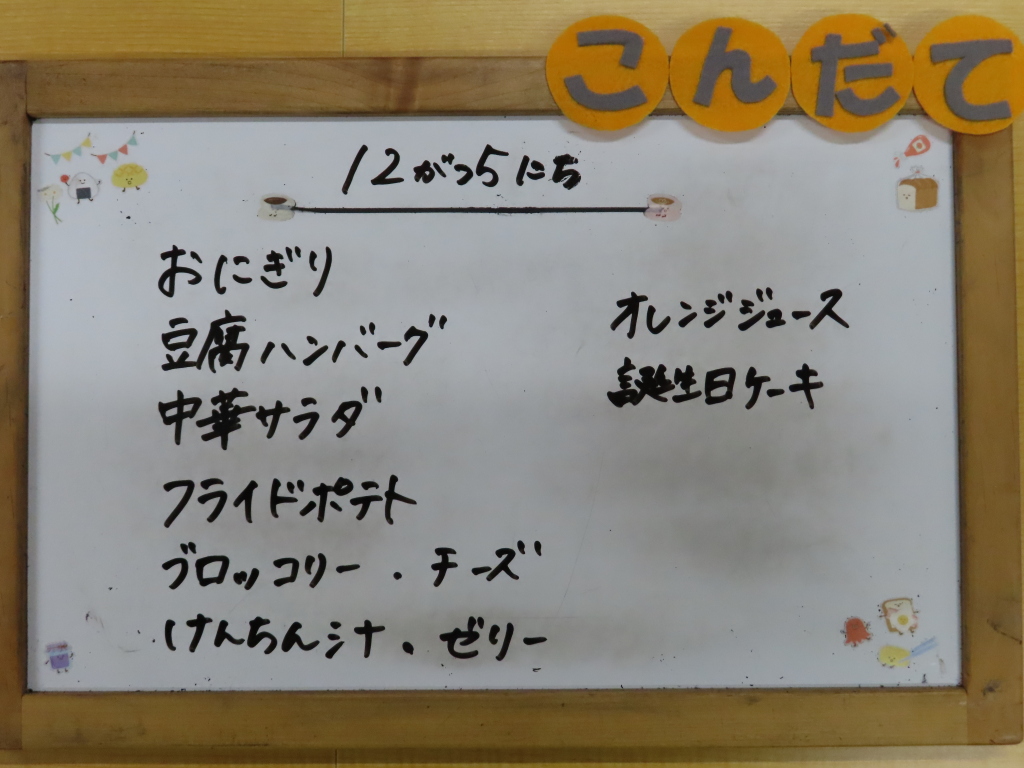 こんだて
12がつ5にち
おにぎり
豆腐ハンバーグ
中華サラダ
フライドポテト
ブロッコリー・チーズ
けんちん汁・ゼリー
オレンジジュース
誕生日ケーキ